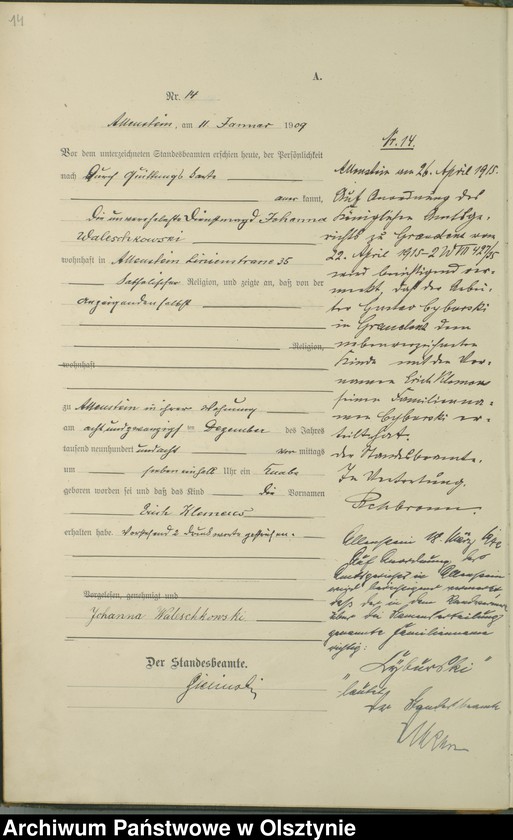 14
A.
Nr. 14
Allenstein, am 11 Januar 1909
Vor dem unterzeichneten Standesbeamten erschien heute, der Persönlichkeit
nach durch Quittungskarte
aner kannt,
die unverehelichte Dienstmagd Johanna
Waleschkowski
wohnhaft in Allenstein Linienstrasse 35
katholischer Religion, und zeigte an, daß von der
Anzeigenden selbst
Religion,
wohnhaft
zu Allenstein in ihrer Wohnung
am achtundzwanzigsten Dezember des Jahres
tausend neunhundert und acht vor mittags
um siebeneinhalb Uhr ein Knabe
geboren worden sei und daß das Kind die Vornamen
Erich Klemens
erhalten habe. Vorstehend 2 Druckworte gestrichen.
Vorgelesen, genehmigt und
Johanna Waleschkowski
Der Standesbeamte.
Nr. 14.
Allenstein am 26. April 1915.
Auf Anordnung des
Königlichen Amtsge-
richts zu Graudenz vom
22. April 1915
wird berichtigend ver-
merkt, daß der
Gustav Cyburski
in Graudenz dem
nebenverzeichneten
Kinde mit den Vor-
namen Erich Klemens
seinen Familienna-
men Cyburski er-
teilt hat.
Der Standesbeamte.
In Vertretung.
Allenstein 18. März
Auf Anordnung des
Amtsgerichts in Allenstein
wird berichtigend vermerkt
daß der in dem Randvermerk
über die Namenserteilung
genannte Familienname
richtig:
"Lyburski"
lautet
Der Standesbeamte
Archiwum Państwowe w Olsztynie